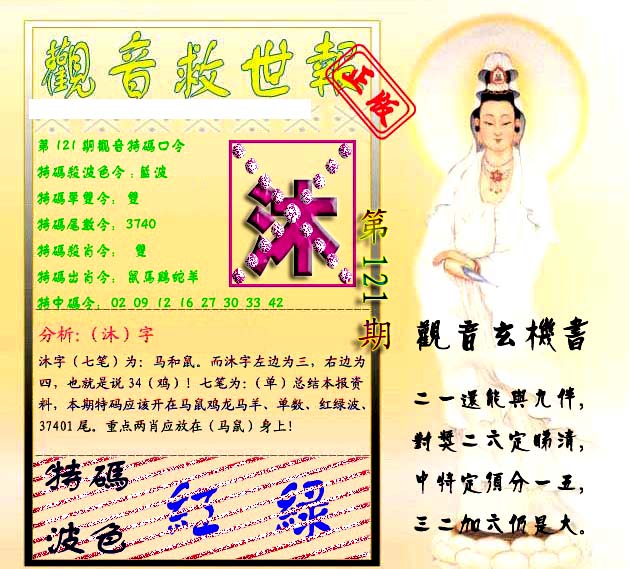 觀音救世報
正版
第121期觀音特碼口令
特碼殺波色令：藍波
特碼單雙令： 雙
特碼尾數令： 3740
特碼殺肖令： 雙
特碼出肖令： 鼠馬鷄蛇羊
特中碼令： 02 09 12 16 27 30 33 42
沐
第121期
分析:（沐）字
沐字（七笔）为：马和鼠。而沐字左边为三，右边为
四，也就是说 34（鸡）！七笔为:（单）总结本报资
料，本期特码应该开在马鼠鸡龙马羊、单数、红绿波、
37401 尾。重点两肖应放在（马鼠）身上！
特碼
波色
紅 綠
觀音玄機書
二一還能與九伴，
對獎二六定睇清，
中特定須分一五，
三二加六仍是大。